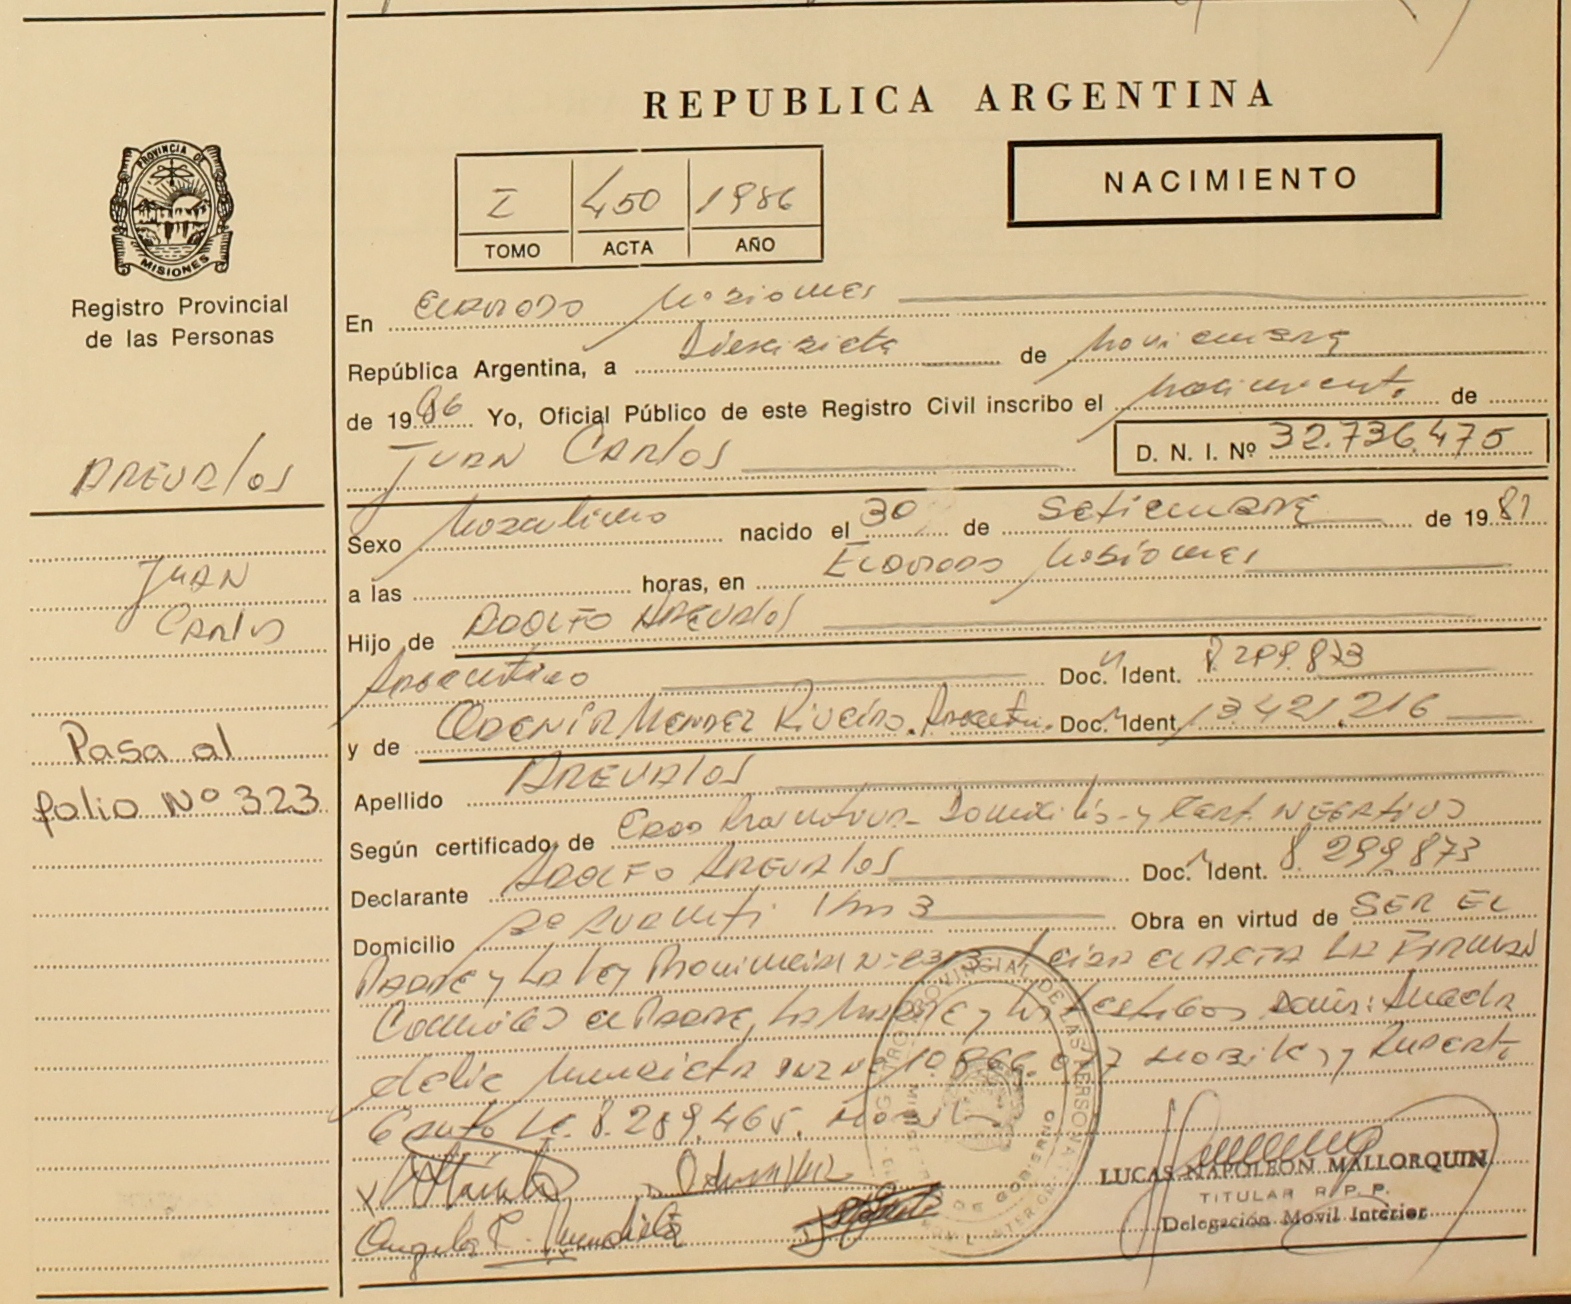 REPUBLICA ARGENTINA
NACIMIENTO
I 450 1986
TOMO ACTA AÑO
PROVINCIA DE
MISIONES
Registro Provincial
de las Personas
En Eldorado Misiones
República Argentina, a Diecisiete de noviembre
de 1986 Yo, Oficial Público de este Registro Civil inscribo el nacimiento de
JUAN CARLOS D. N. I. Nº 32.736.475
AREVALOS
Sexo Masculino nacido el 30 de Setiembre de 1981
a las horas, en Eldorado Misiones
JUAN
CARLOS
Hijo de ADOLFO AREVALOS
Argentino Doc. Ident. 8.299.873
y de MENDEZ Riveiro. Argentin. Doc. Ident. 13.421.216
Pasa al
folio Nº 323
Apellido AREVALOS
Según certificado de Domicilio y Cert. NEGATIVO
Declarante ADOLFO AREVALOS Doc. Ident. 8.299.873
Domicilio Km 3 Obra en virtud de SER EL
PADRE y LA Ley Provincial EL ACTA LA FIRMAN
el PADRE, LA MADRE y testigos
10.866.077 y
8.289.465.
LUCAS NAPOLEON MALLORQUIN
TITULAR R. P. P.
Delegación Movil Interior